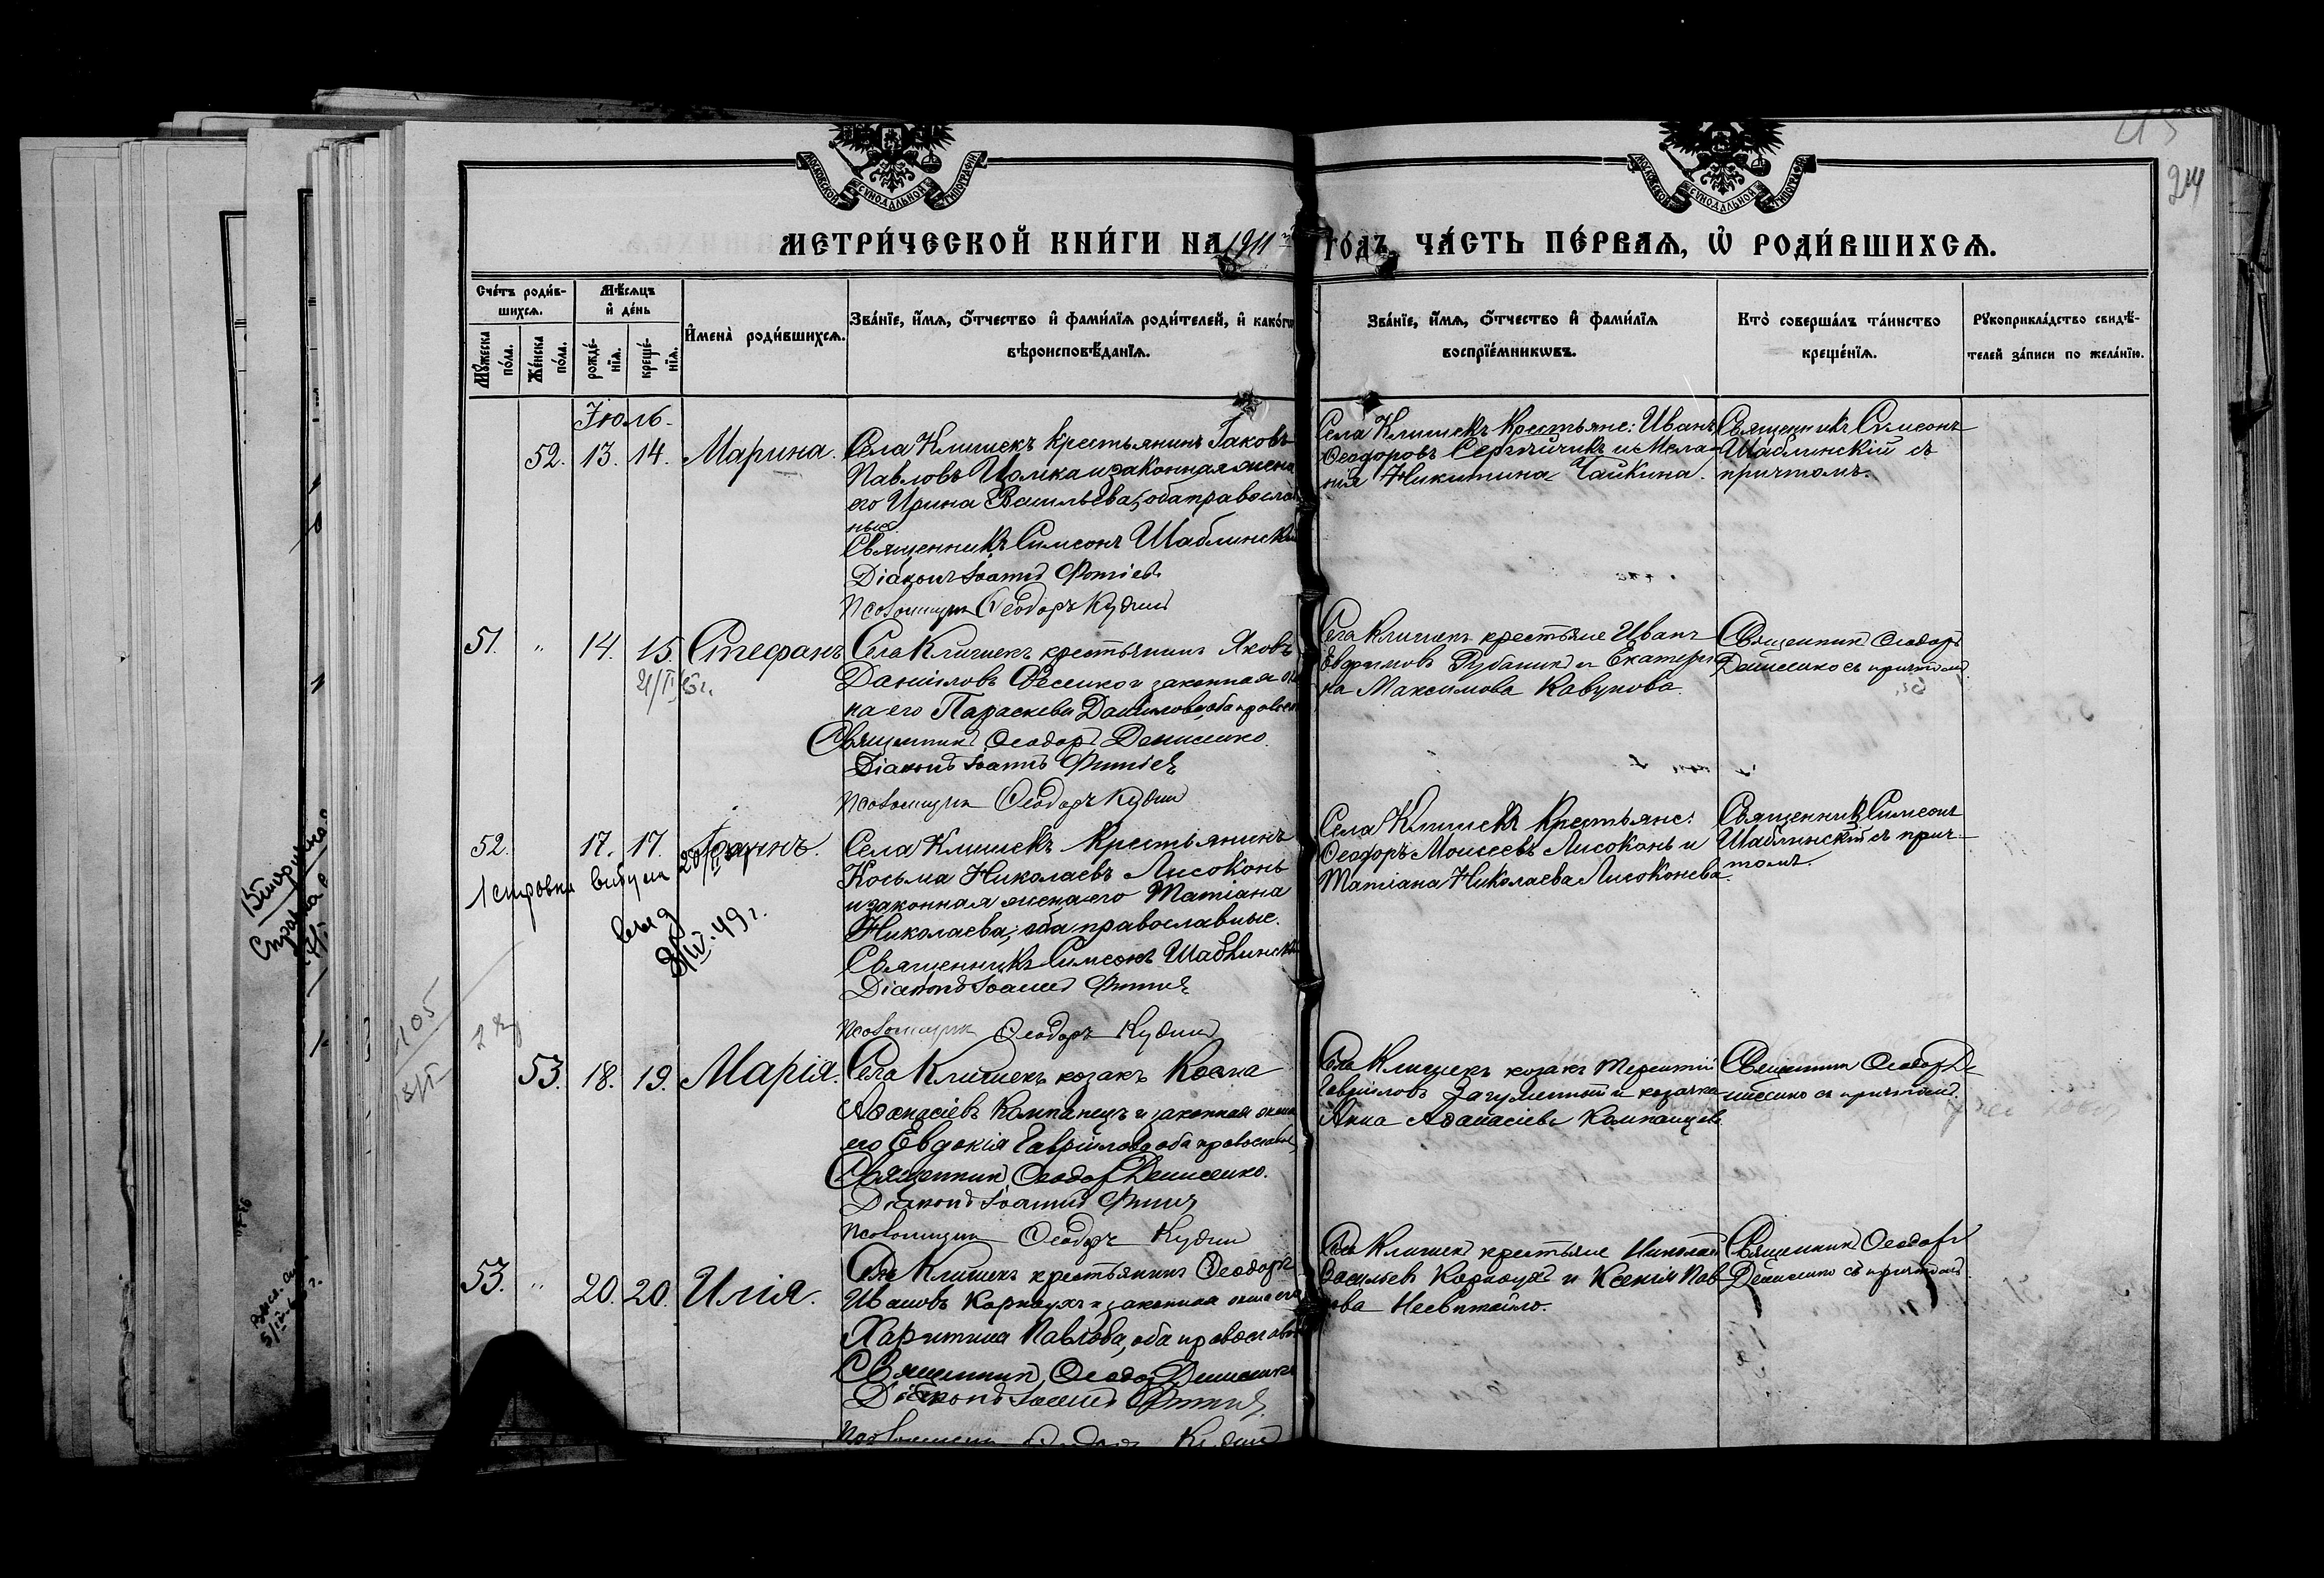 МОСКОВСКОЙ СѴНОДАЛЬНОЙ ТИПОГРАФІИ
МОСКОВСКОЙ СѴНОДАЛЬНОЙ ТИПОГРАФІИ
24
МЕТРИ́ЧЕСКОЙ КНИ́ГИ НА 1911 ГО́ДЪ, ЧА́СТЬ ПЕ́РВАѦ, Ѡ҆ РОДИ́ВШИХСѦ.
Сче́тъ роди́в-
шихсѧ.
Мѣ́сѧцъ
и҆ де́нь
И҆мена̀ роди́вшихсѧ.
Зва́нїе, и҆́мѧ, ѻ҆́тчество и҆ фами́лїѧ роди́телей, и҆ како́гѡ
вѣроисповѣ́данїѧ.
Зва́нїе, и҆́мѧ, ѻ҆́тчество и҆ фами́лїѧ
воспрїе́мникѡвъ.
Кто̀ соверша́лъ та́инство
креще́нїѧ.
Рꙋкоприкла́дство свидѣ́-
телей за́писи по жела́нїю.
Мꙋ́жеска
по́ла.
Же́нска
по́ла.
рожде́-
нїѧ.
креще́-
нїѧ.
Іюль.
52. 13. 14. Марина.
Села Клишекъ крестьянинъ Іаковъ
Павловъ и законная жена
его Ирина Васильева, оба православ
ные
Священникъ Симеонъ Шаблинскій
Діаконъ Іоаннъ Фотіевъ
Псаломщикъ Ѳеодоръ Кудинъ
Села Клишекъ крестьяне: Иванъ
Ѳеодоровъ Сергѣйчикъ и Мела-
нія Никитина Чайкина.
Священникъ Симеонъ
Шаблинскій съ
причтомъ.
51. " 14. 15. Стефанъ
Села Клишекъ крестьянинъ Яковъ
Даніиловъ и законная же
на его Параскева Даніилова, оба правосл
Священникъ Ѳеодоръ Денисенко.
Діаконъ Іоаннъ Фотіевъ
Псаломщикъ Ѳеодоръ Кудинъ
Села Клишекъ крестьяне Иванъ
Евфимовъ Рубаникъ и Екатери
на Максимова Кавунова.
Священникъ Ѳеодоръ
Денисенко съ причтомъ.
52. 17. 17. Іоаннъ.
Села Клишекъ крестьянинъ
Косьма Николаевъ Лисоконь
и законная жена его Татіана
Николаева, оба православные.
Священникъ Симеонъ Шаблинскій
Діаконъ Іоаннъ Фотіевъ
Псаломщикъ Ѳеодоръ Кудинъ
Села Клишекъ крестьяне:
Ѳеодоръ Моисеевъ Лисоконь и
Татіана Николаева Лисоконева.
Священникъ Симеонъ
Шаблинскій съ прич-
томъ.
выд
3/IV.49 г.
53. 18. 19. Марія.
Села Клишекъ козакъ
Аѳанасіевъ Компанецъ и законная жена
его Евдокія Гавріилова, оба православные,
Священникъ Ѳеодоръ Денисенко.
Діаконъ Іоаннъ Фотіевъ
Псаломщикъ Ѳеодоръ Кудинъ
Села Клишекъ козакъ Терентій
Гавріиловъ и козачка
Анна Аѳанасіева Компанцева
Священникъ Ѳеодоръ Де-
нисенко съ причтомъ.
53. " 20. 20. Илія.
Села Клишекъ крестьянинъ Ѳеодоръ
Ивановъ Карнаухъ и законная жена его
Харитина Павлова, оба православн
Священникъ Ѳеодоръ Денисенко
Діаконъ Іоаннъ Фотіевъ
Псаломщикъ Ѳеодоръ Кудинъ
Села Клишекъ крестьяне Николай
Васильевъ Карнаухъ и Ксенія Пав
лова Несвитайло.
Священникъ Ѳеодоръ
Денисенко съ причтомъ.